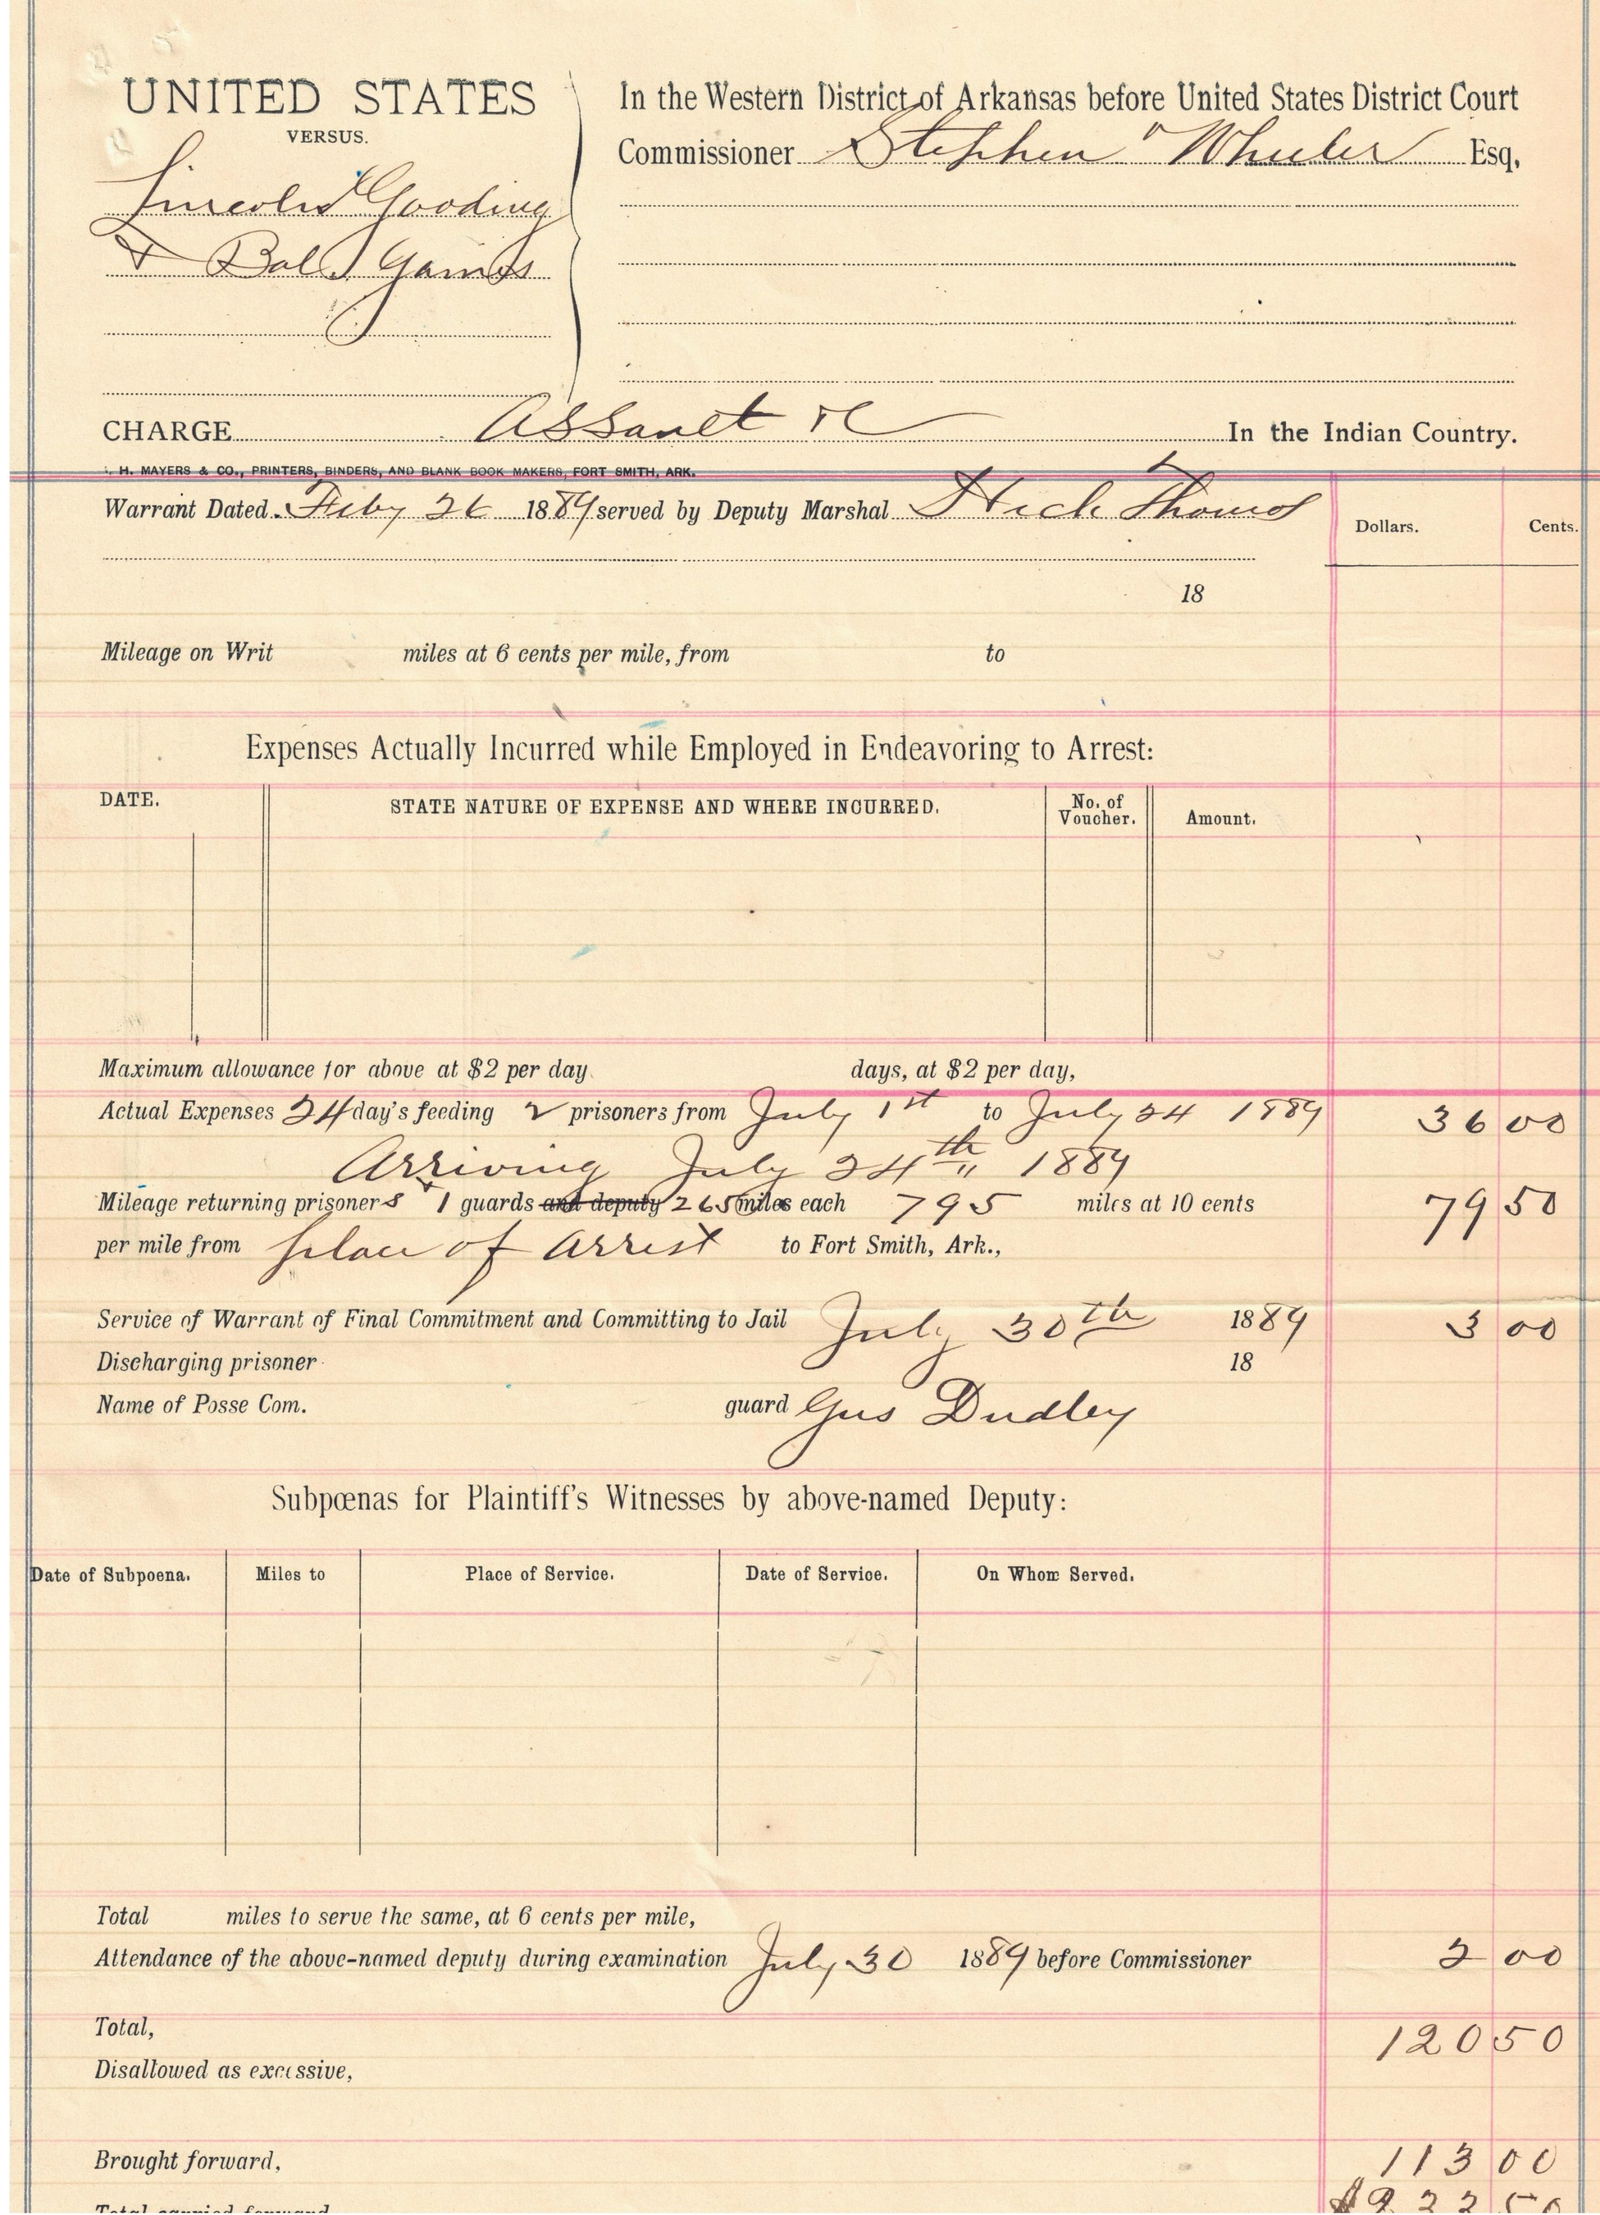 UNITED STATES
VERSUS.
Lincoln Gooding
& Bale Gaines
In the Western District of Arkansas before United States District Court
Commissioner Stephen Wheeler Esq,
CHARGE Assault &c In the Indian Country.
H. MAYERS & CO., PRINTERS, BINDERS, AND BLANK BOOK MAKERS, FORT SMITH, ARK.
Warrant Dated Feby 26 1889 served by Deputy Marshal Heck Thomas
Dollars. Cents.
18
Mileage on Writ miles at 6 cents per mile, from to
Expenses Actually Incurred while Employed in Endeavoring to Arrest:
DATE. STATE NATURE OF EXPENSE AND WHERE INCURRED. No. of Voucher. Amount.
Maximum allowance for above at $2 per day days, at $2 per day,
Actual Expenses 24 day's feeding 2 prisoners from July 1st to July 24 1889 36 00
Arriving July 24th 1889
Mileage returning prisoners & 1 guards and deputy 265 miles each 795 miles at 10 cents 79 50
per mile from place of arrest to Fort Smith, Ark.,
Service of Warrant of Final Commitment and Committing to Jail July 30th 1889 3 00
Discharging prisoner 18
Name of Posse Com. guard Gus Dudley
Subpœnas for Plaintiff's Witnesses by above-named Deputy:
Date of Subpoena. Miles to Place of Service. Date of Service. On Whom Served.
Total miles to serve the same, at 6 cents per mile,
Attendance of the above-named deputy during examination July 30 1889 before Commissioner 2 00
Total, 120 50
Disallowed as excessive,
Brought forward, 113 00
Total carried forward $233 50